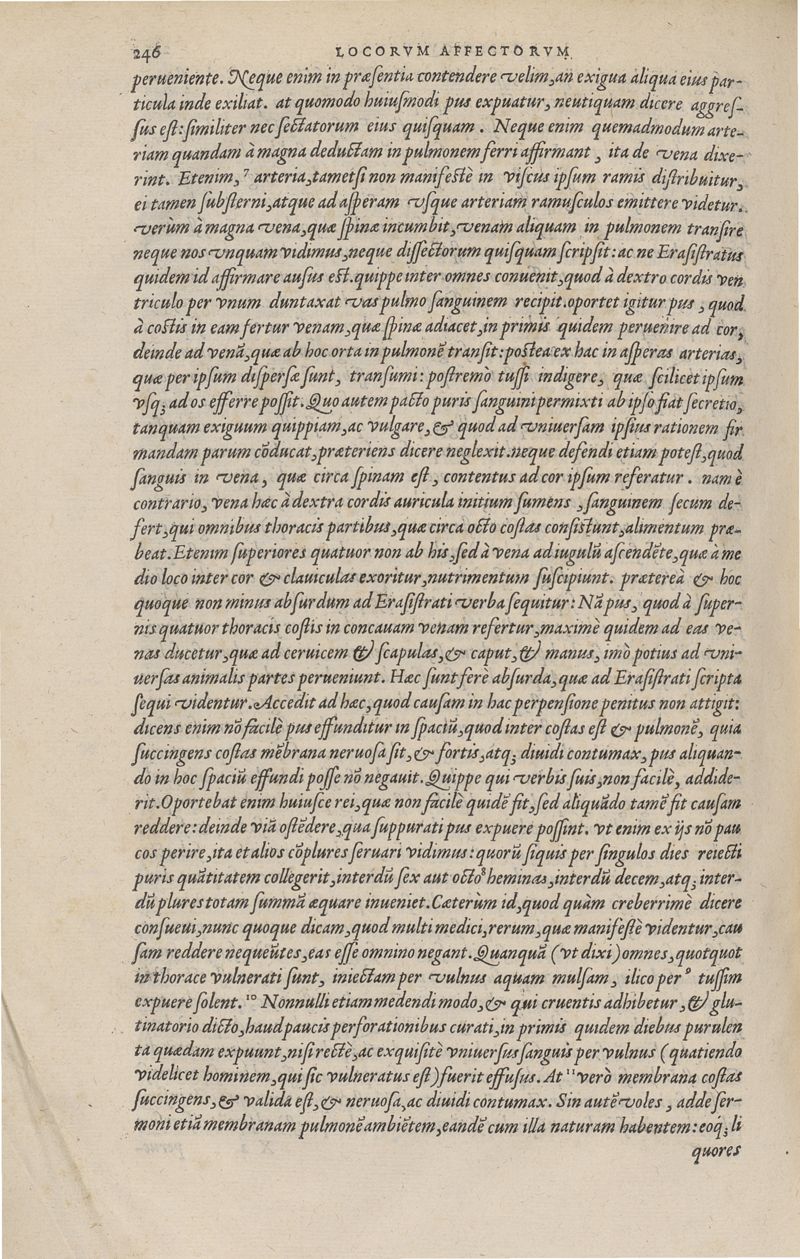 246 LOCORVM AFFECTORVM
perueniente. Neque enim in præſentia contendere velim,an exigua aliqua eius par-
ticula inde exiliat. at quomodo huiuſmodi pus expuatur, neutiquam dicere aggreſ-
ſus eſt: ſimiliter nec ſectatorum eius quiſquam. Neque enim quemadmodum arte-
riam quandam à magna deductam in pulmonem ferri affirmant, ita de vena dixe-
rint. Etenim,⁷ arteria,tametſi non manifeſtè in viſcus ipſum ramis diſtribuitur,
ei tamen ſubſterni,atque ad aſperam vſque arteriam ramuſculos emittere videtur.
verùm à magna vena,quæ ſpinæ incumbit,venam aliquam in pulmonem tranſire
neque nos vnquam vidimus,neque diſſectorum quiſquam ſcripſit: ac ne Eraſiſtratus
quidem id affirmare auſus eſt.quippe inter omnes conuenit,quod à dextro cordis ven
triculo per vnum duntaxat vas pulmo ſanguinem recipit.oportet igitur pus, quod
à coſtis in eam fertur venam,quæ ſpinæ adiacet,in primis quidem peruenire ad cor,
deinde ad venã,quæ ab hoc orta in pulmonẽ tranſit: poſtea ex hac in aſperas arterias,
quæ per ipſum diſperſæ ſunt, tranſumi: poſtremò tuſſi indigere, quæ ſcilicet ipſum
vſq; ad os efferre poſſit. Quo autem pacto puris ſanguini permixti ab ipſo fiat ſecretio,
tanquam exiguum quippiam,ac vulgare, & quod ad vniuerſam ipſius rationem fir
mandam parum cõducat,præteriens dicere neglexit.neque defendi etiam poteſt,quod
ſanguis in vena, quæ circa ſpinam eſt, contentus ad cor ipſum referatur. nam è
contrario, vena hæc à dextra cordis auricula initium ſumens, ſanguinem ſecum de-
fert,qui omnibus thoracis partibus,quæ circa octo coſtas conſiſtunt,alimentum præ-
beat. Etenim ſuperiores quatuor non ab his,ſed à vena ad iugulũ aſcendẽte,quæ à me
dio loco inter cor & clauiculas exoritur,nutrimentum ſuſcipiunt. prætereà & hoc
quoque non minus abſurdum ad Eraſiſtrati verba ſequitur: Nã pus, quod à ſuper-
nis quatuor thoracis coſtis in concauam venam refertur,maximè quidem ad eas ve-
nas ducetur,quæ ad ceruicem & ſcapulas,& caput,& manus, imò potius ad vni-
uerſas animalis partes perueniunt. Hæc ſunt ferè abſurda,quæ ad Eraſiſtrati ſcripta
ſequi videntur.Accedit ad hæc,quod cauſam in hac perpenſione penitus non attigit:
dicens enim nõ facilè pus effunditur in ſpaciũ,quod inter coſtas eſt & pulmonẽ, quia
ſuccingens coſtas mẽbrana neruoſa ſit,& fortis,atq; diuidi contumax, pus aliquan-
do in hoc ſpaciũ effundi poſſe nõ negauit. Quippe qui verbis ſuis,non facilè, addide-
rit.Oportebat enim huiuſce rei,quæ non facilè quidẽ fit,ſed aliquãdo tamẽ fit cauſam
reddere: deinde viã oſtẽdere,qua ſuppurati pus expuere poſſint. vt enim ex ijs nõ pau
cos perire,ita et alios cõplures ſeruari vidimus: quorũ ſiquis per ſingulos dies reiecti
puris quãtitatem collegerit,interdũ ſex aut octo⁸ heminas,interdũ decem,atq; inter-
dũ plures totam ſummã æquare inueniet.Cæterùm id,quod quàm creberrimè dicere
conſueui,nunc quoque dicam,quod multi medici,rerum,quæ manifeſtè videntur,cau
ſam reddere nequeũtes,eas eſſe omnino negant.Quanquã (vt dixi)omnes,quotquot
in thorace vulnerati ſunt, iniectam per vulnus aquam mulſam, ilico per⁹ tuſſim
expuere ſolent.¹⁰ Nonnulli etiam medendi modo,& qui cruentis adhibetur,& glu-
tinatorio dicto,haud paucis perforationibus curati,in primis quidem diebus purulen
ta quædam expuunt,niſi rectè,ac exquiſitè vniuerſus ſanguis per vulnus (quatiendo
videlicet hominem,qui ſic vulneratus eſt)fuerit effuſus. At¹¹ verò membrana coſtas
ſuccingens,& valida eſt,& neruoſa,ac diuidi contumax. Sin autẽ voles, adde ſer-
moni etiã membranam pulmonẽ ambiẽtem,eandẽ cum illa naturam habentem: eoq́; li
quores